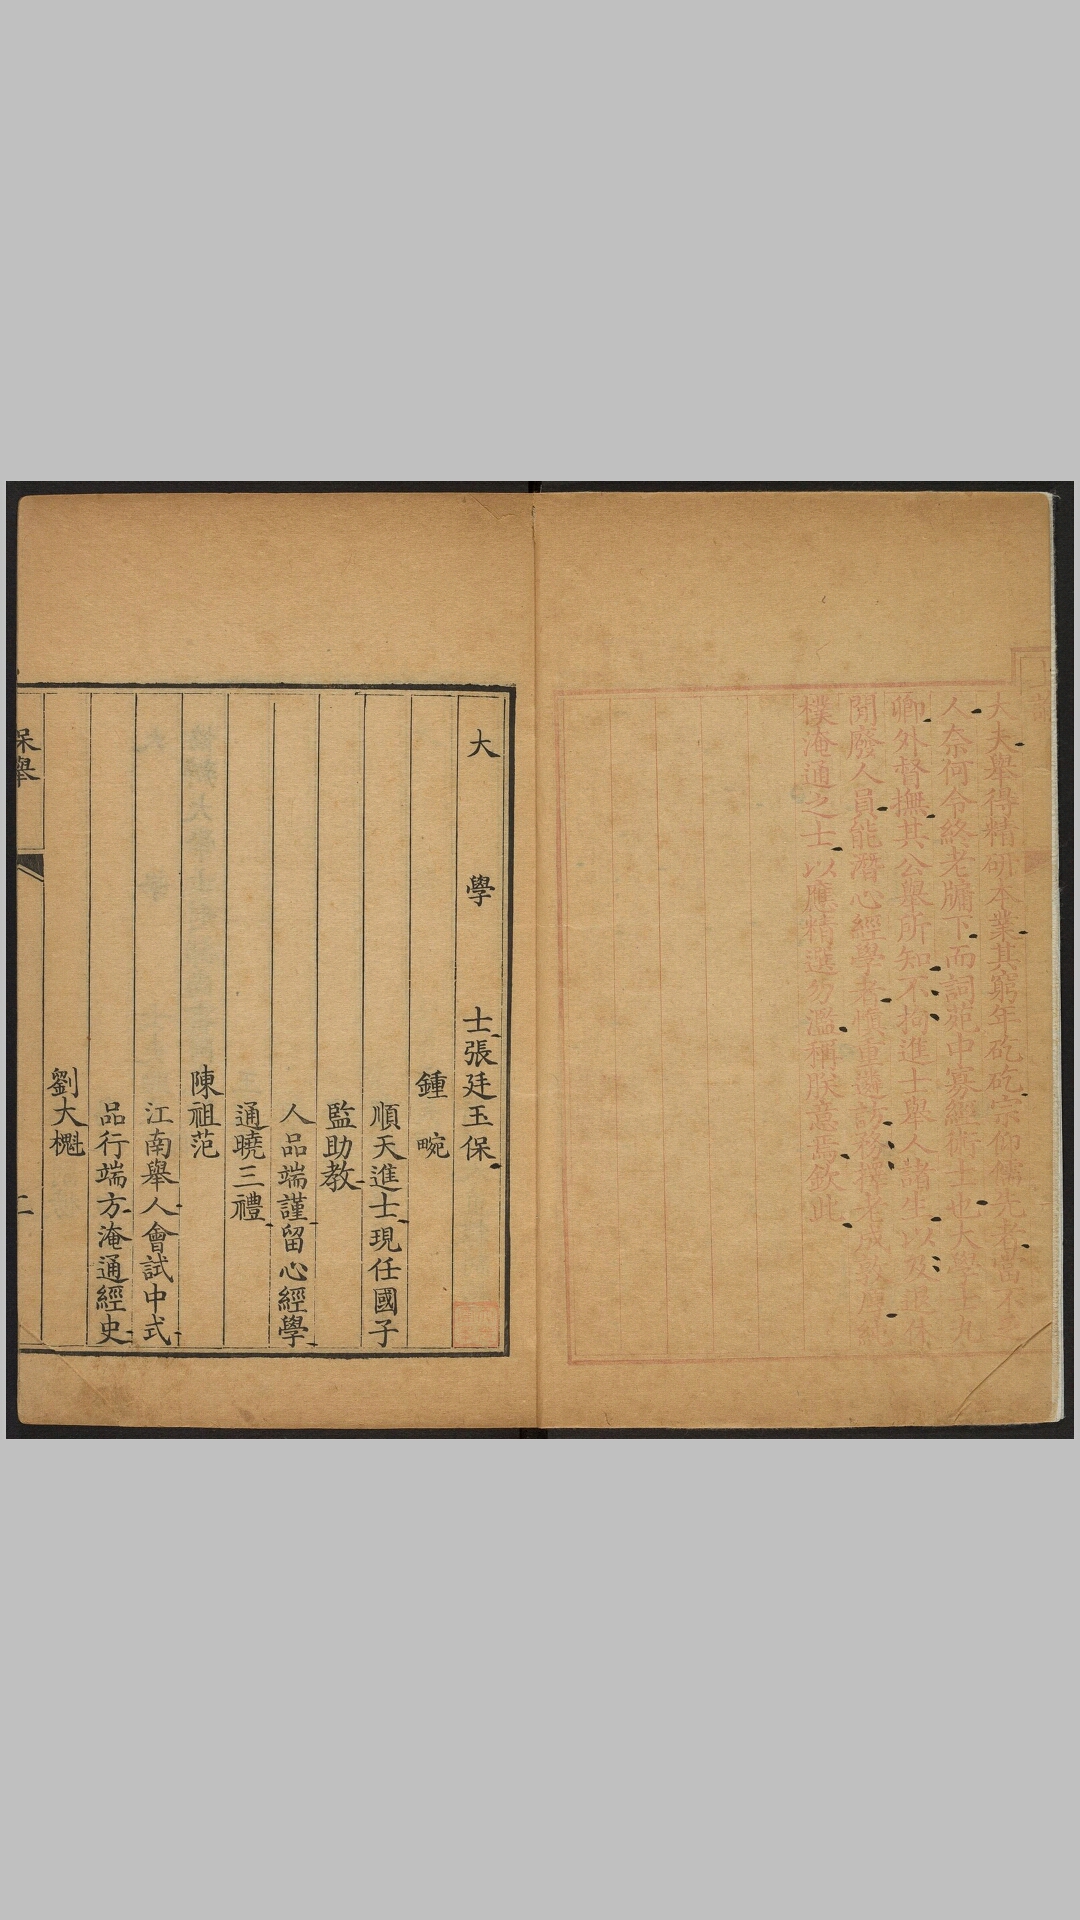 大夫舉得精研本業其窮年矻矻宗仰儒先者當不乏
人奈何令終老牖下而詞苑中寡經術士也大學士九
卿外督撫其公舉所知不拘進士舉人諸生以及退休
閒廢人員能潛心經學者慎重遴訪務擇老成敦厚純
樸淹通之士以應精選勿濫稱朕意焉欽此
大學士張廷玉保
鍾畹
順天進士現任國子
監助教
人品端謹留心經學
通曉三禮
陳祖范
江南舉人會試中式
品行端方淹通經史
劉大櫆
保舉
二